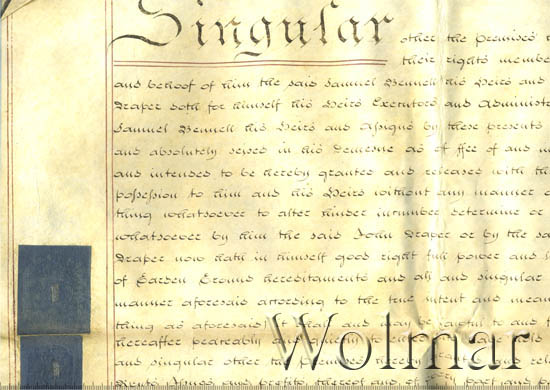 Singular
other the Premises
their rights membe
and behoof of him the said Samuel Bennell his Heirs and
Draper doth for himself his Heirs Executors and Administ
Samuel Bennell his Heirs and Assigns by these presents
and absolutely seised in his demesne as of ffee of and in
and intended to be hereby granted and released with th
possession to him and his Heirs without any manner
thing whatsoever to alter hinder incumber determine or
whatsoever by him the said John Draper or by the sa
Draper now hath in himself good right full power and
of Garden Ground hereditaments and all and singular
manner aforesaid according to the true intent and mean
thing as aforesaid shall and may be lawful to and
hereafter peaceably and quietly to
and singular other the Premises hereby and rel
Rents Issues and profits thereof and of part and
Wolmar